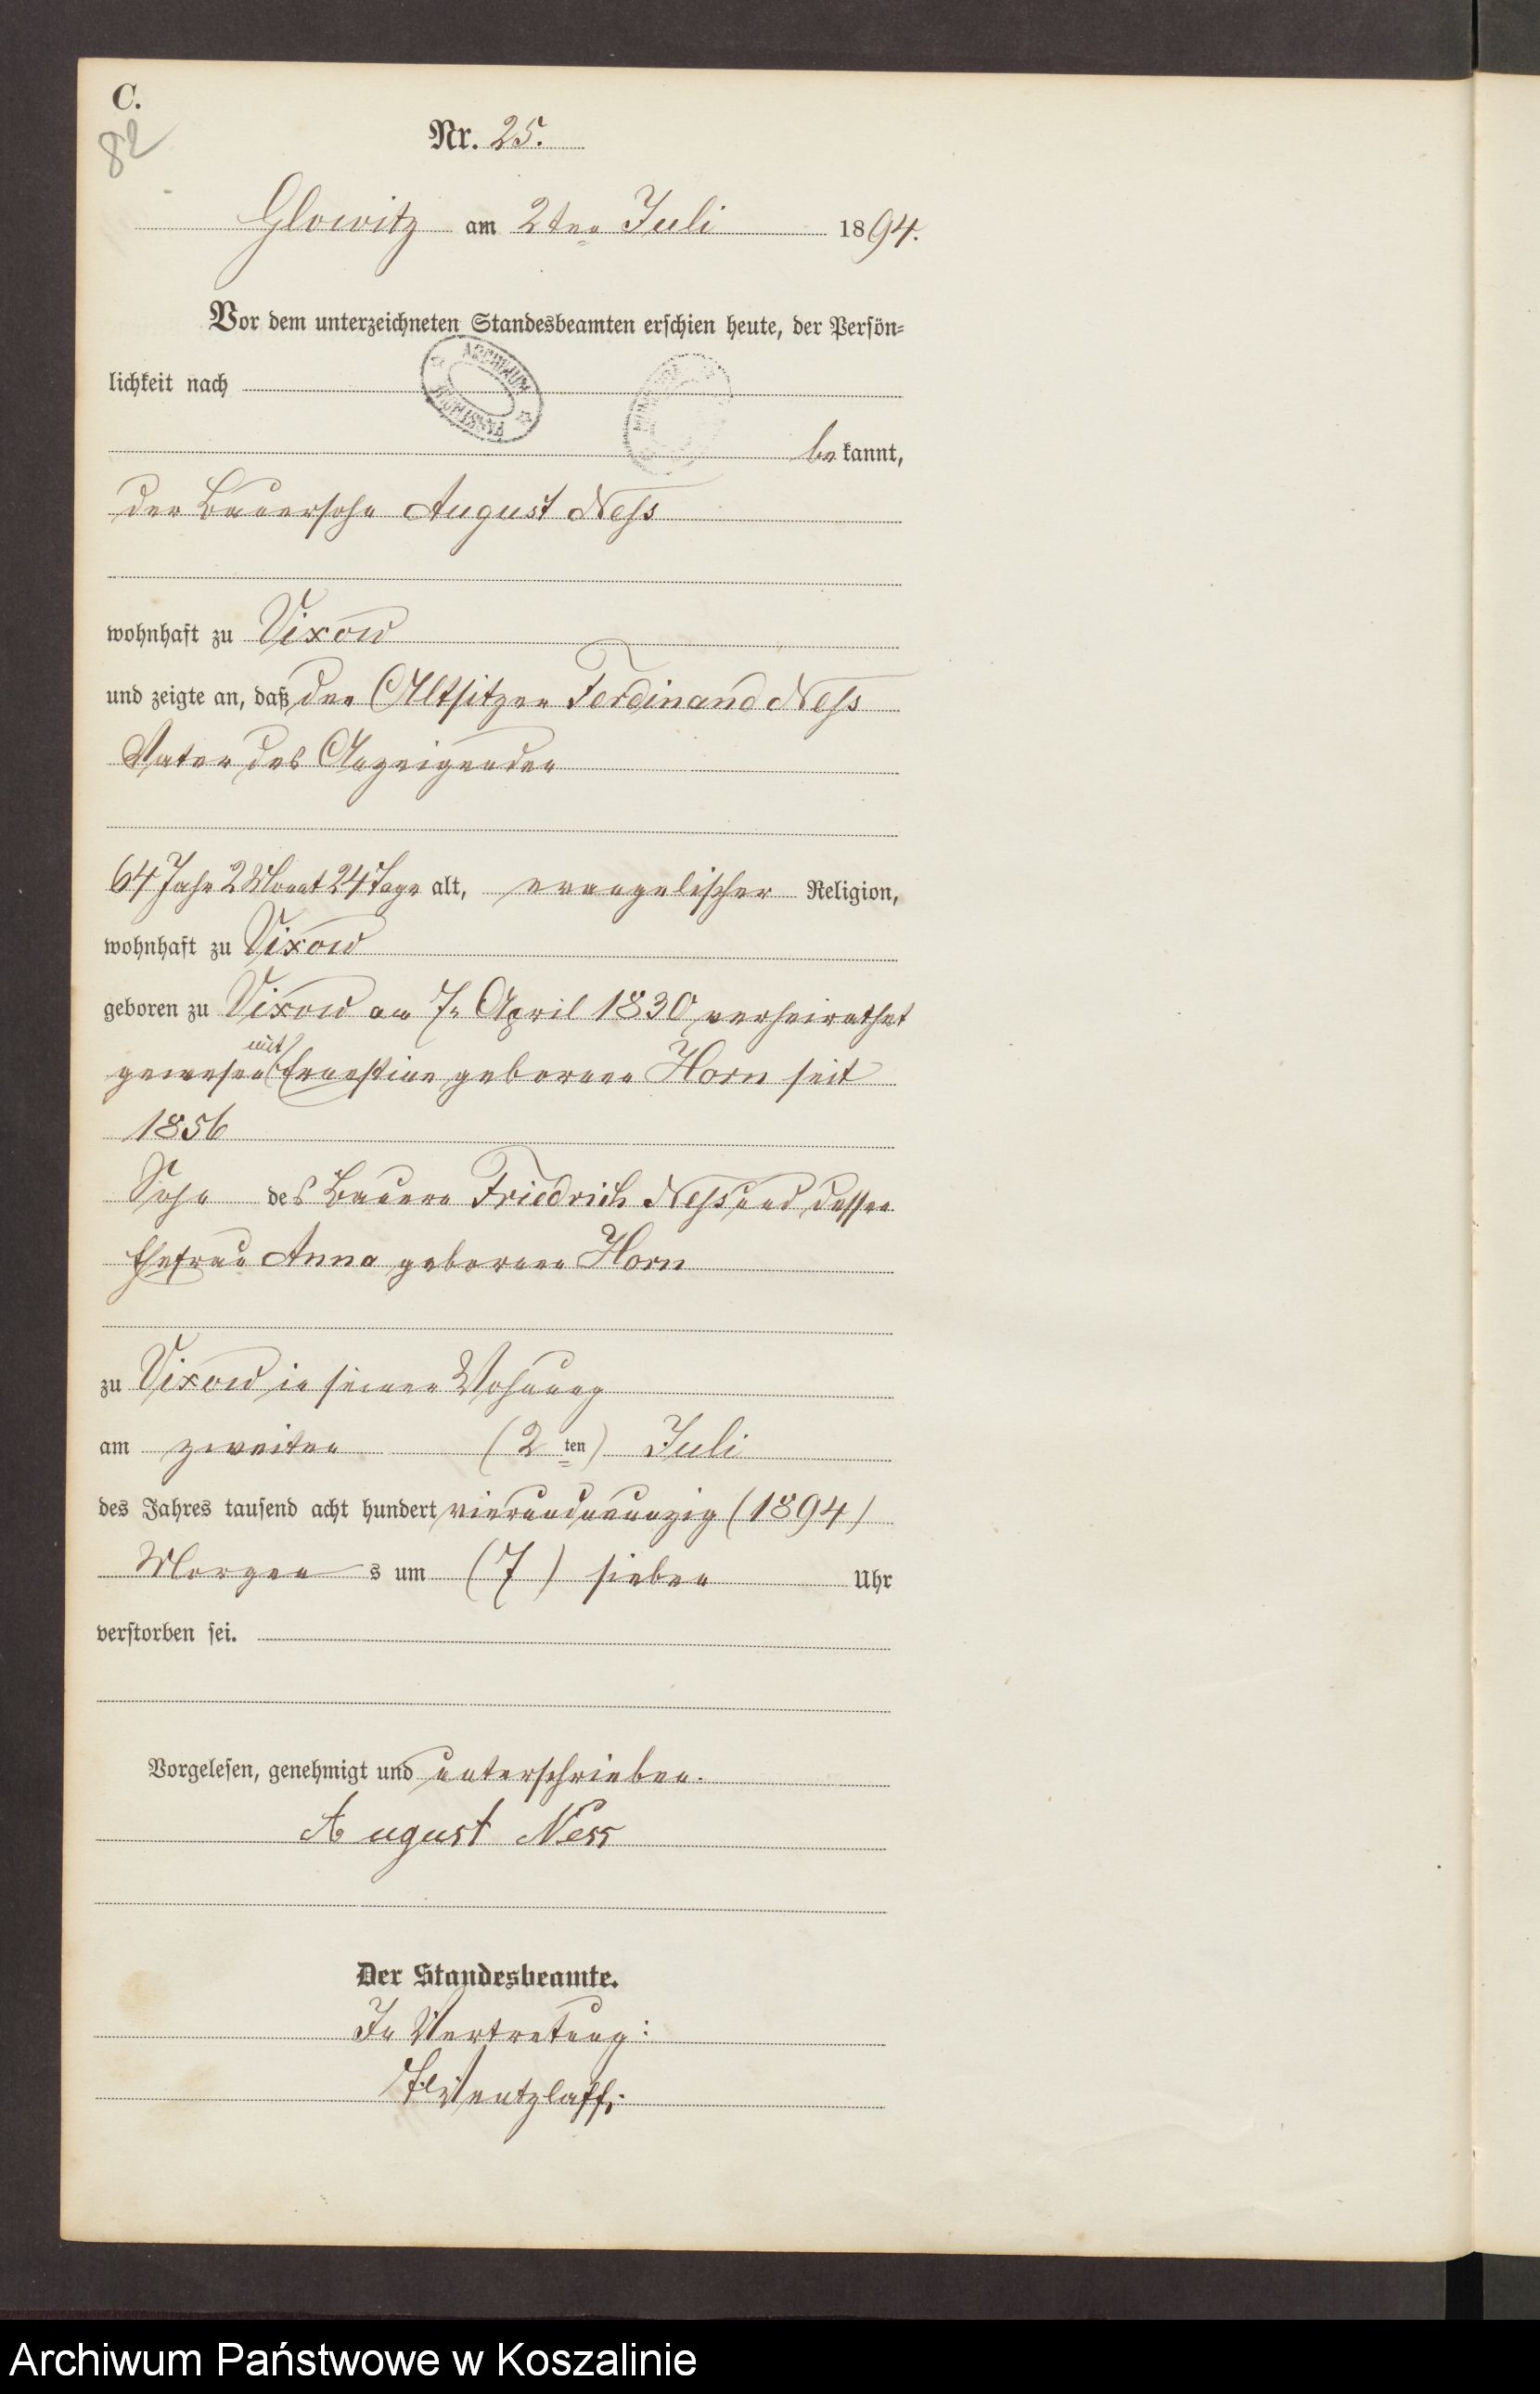 C.
82
Nr. 25.
Glowitz am 2ten Juli 1894.
Vor dem unterzeichneten Standesbeamten erschien heute, der Persön=
lichkeit nach
ARCHIWUM
bekannt,
der Bauersohn August Neß
wohnhaft zu Vixow
und zeigte an, daß der Altsitzer Ferdinand Neß
Vater des Anzeigenden
64 Jahr 2 Monat 24 Tage alt, evangelischer Religion,
wohnhaft zu Vixow
geboren zu Vixow am 7n April 1830 verheirathet
mit
gewesen Ernestine geborene Horn seit
1856
Sohn des Bauern Friedrich Neß und dessen
Ehefrau Anna geborene Horn
zu Vixow in seiner Wohnung
am zweiten (2 ten) Juli
des Jahres tausend acht hundert vierundneunzig (1894)
Morgens um (7) sieben Uhr
verstorben sei.
Vorgelesen, genehmigt und unterschrieben.
August Ness
Der Standesbeamte.
In Vertretung:
Wentzlaff.
Archiwum Państwowe w Koszalinie